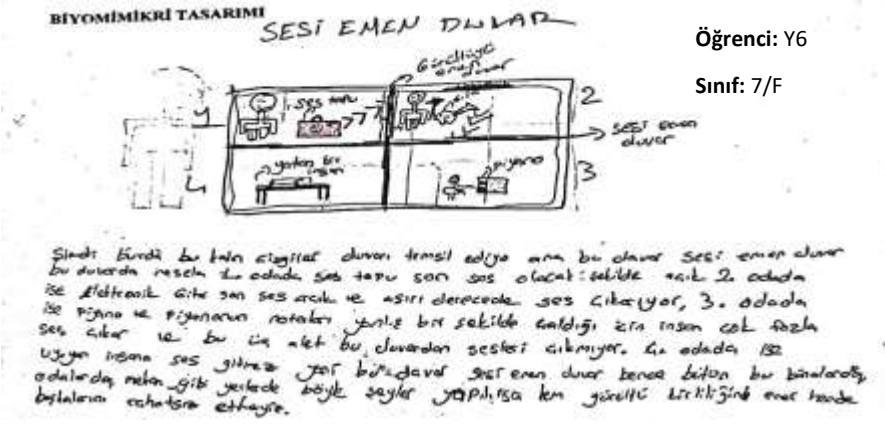 BİYOMİMİKRİ TASARIMI
SESİ EMEN DUVAR
Öğrenci: Y6
Sınıf: 7/F
Gürültüyü
emen
duvar
ses
2
sesi emen
duvar
yatan bir
insan
piyano
3
Şimdi burda bu kalın çizgiler duvarı temsil ediyo ama bu duvar sesi emen duvar
bu duvarda mesela 1. odada ses son ses olacak şekilde açık 2. odada
ise elektronik gitar son ses açık ve aşırı derecede ses çıkarıyor, 3. odada
ise piyano ve piyanonun notaları yanlış bir şekilde çaldığı için insan çok fazla
ses çıkar ve bu üç alet bu duvardan sesleri çıkmıyor. 4. odada ise
uyuyan insana ses gitmez yani bu duvar sesi emen duvar bence bütün bu binalarda,
odalarda, gibi yerlede böyle şeyler yapılırsa hem gürültü kirliliğini emer hemde
başkalarını rahatsız etmeyiz.